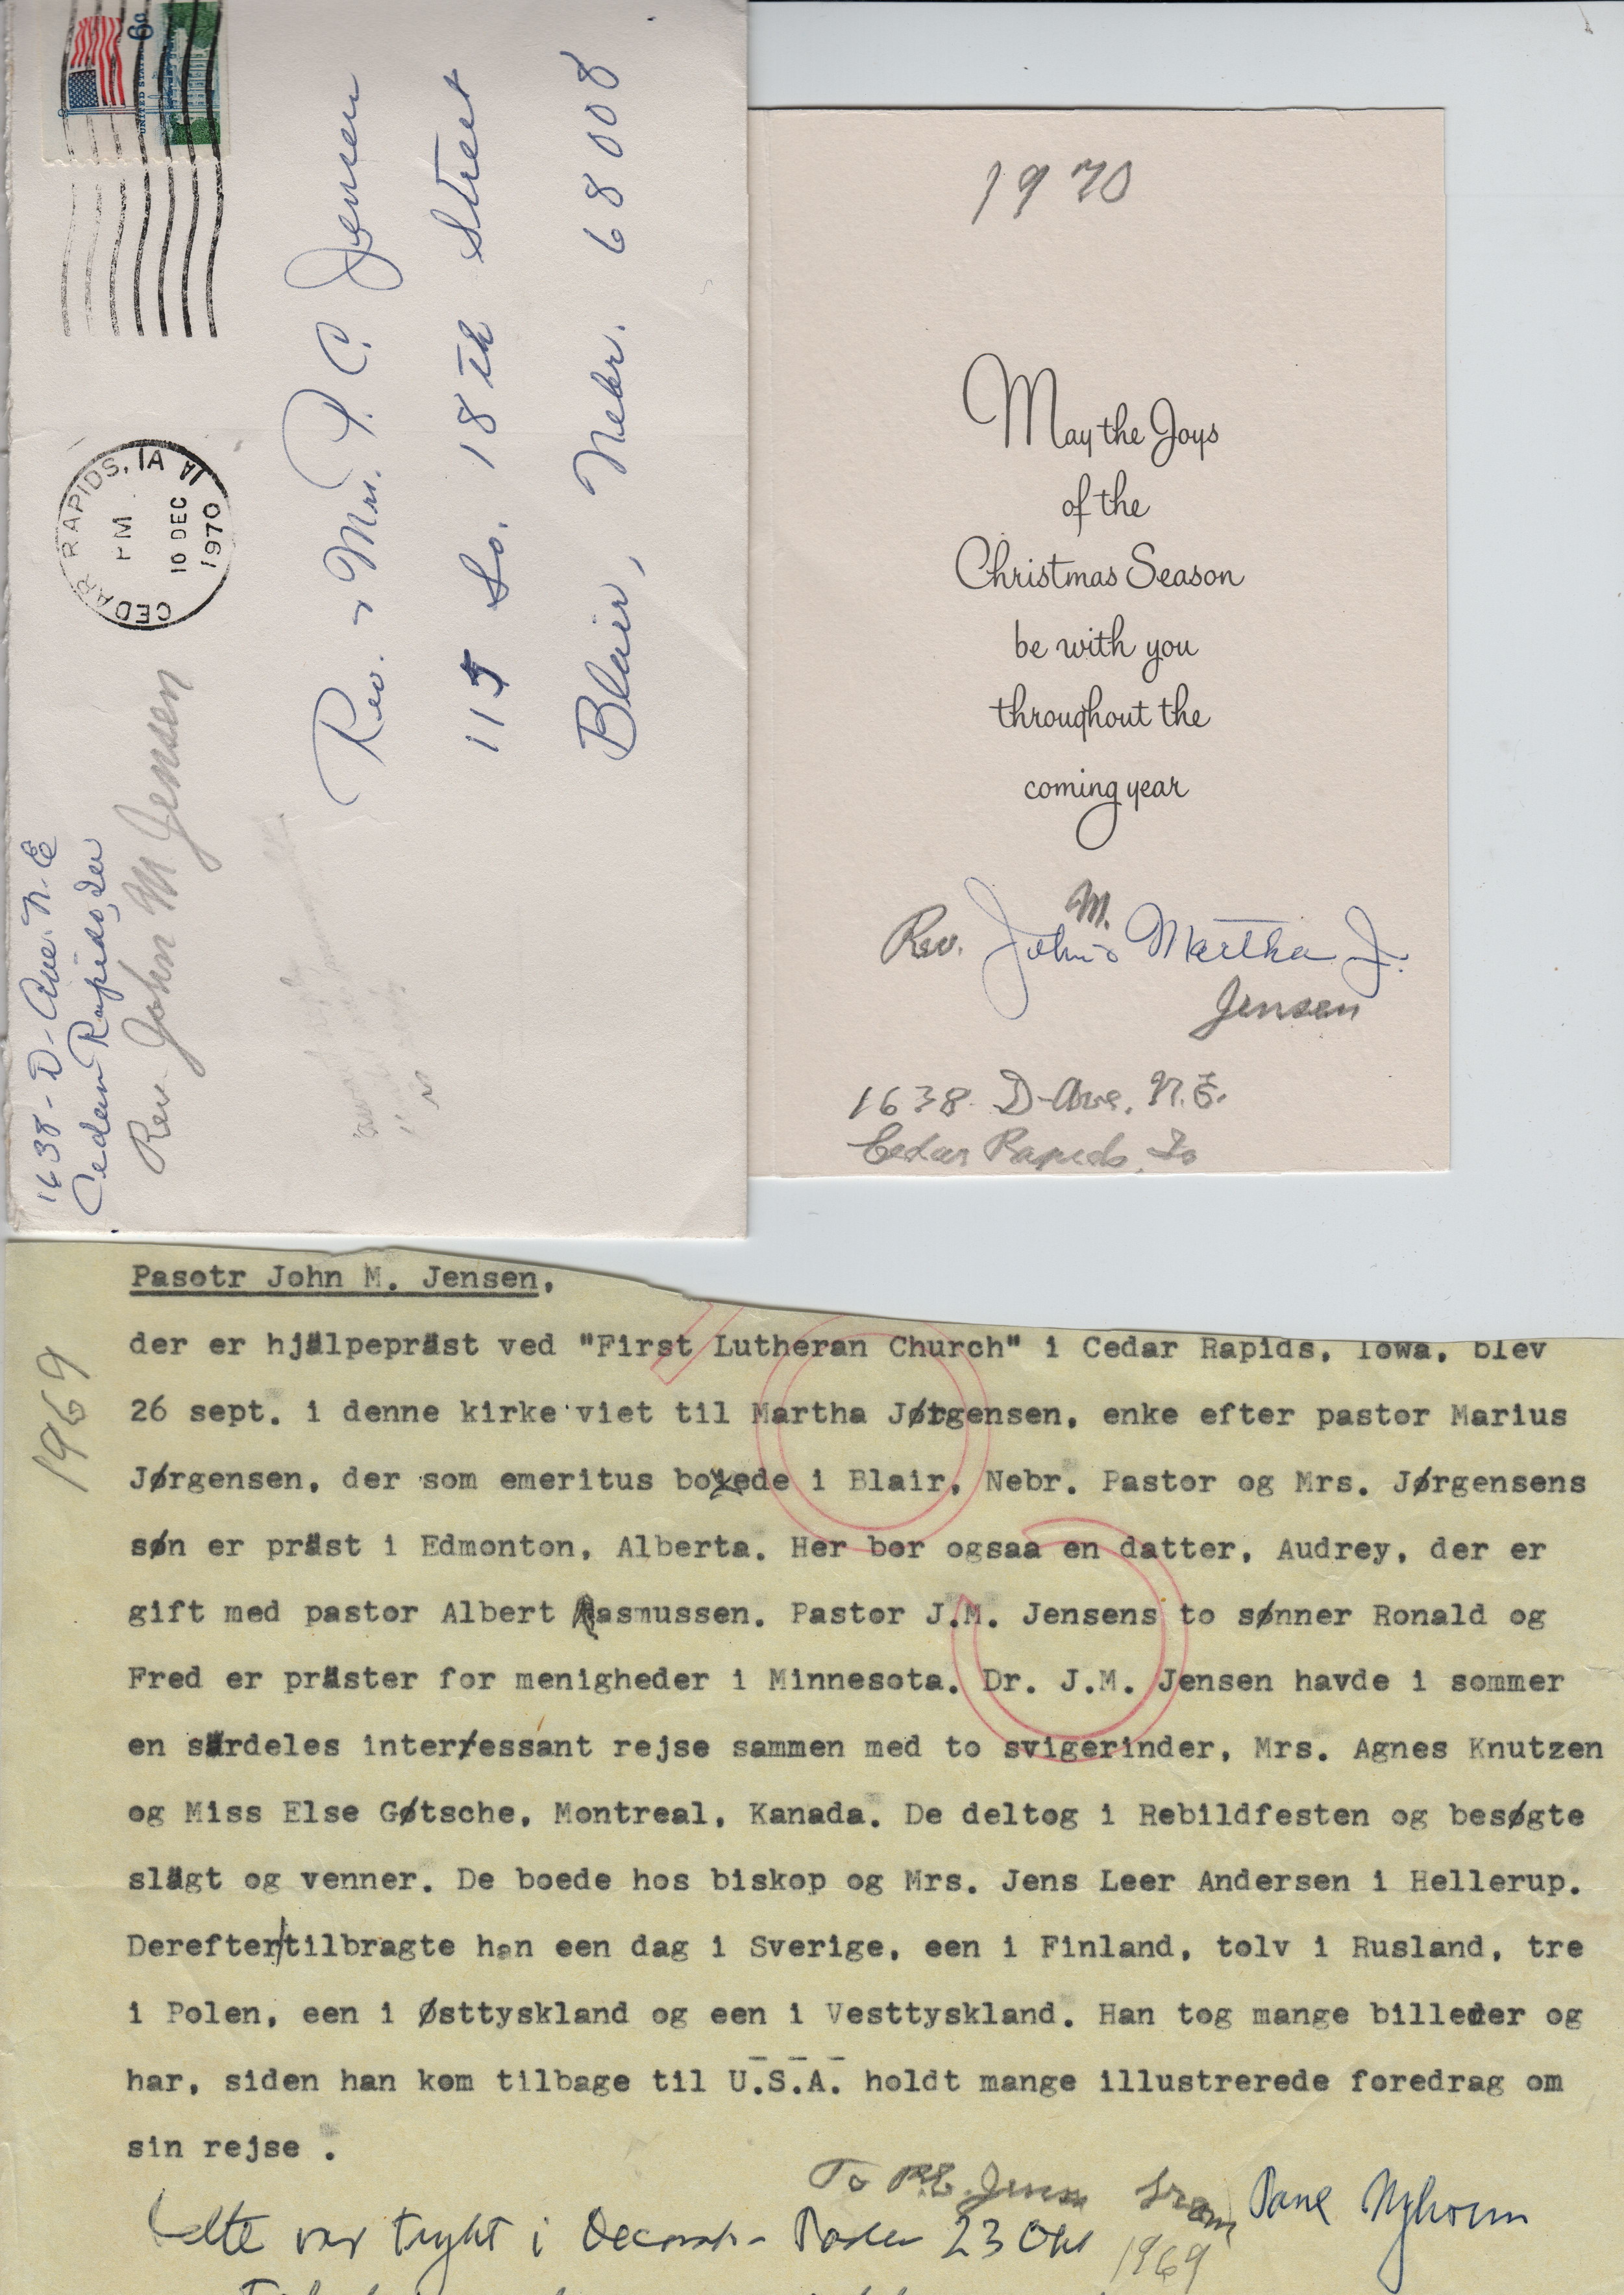 UNITED STATES 6¢
CEDAR RAPIDS, IA
PM
10 DEC
1970
1638 - D - Ave. N. E
Cedar Rapids, Ia
Rev. John M Jensen
Rev. & Mrs. P. C. Jensen
115 So. 18th Street
Blair, Nebr. 68008
1970
May the Joys
of the
Christmas Season
be with you
throughout the
coming year
Rev. John M. & Martha J.
Jensen
1638 D-Ave. N.E.
Cedar Rapids, Io
1969
Pasotr John M. Jensen,
der er hjälpepräst ved "First Lutheran Church" i Cedar Rapids, Iowa, blev
26 sept. i denne kirke viet til Martha Jørgensen, enke efter pastor Marius
Jørgensen, der som emeritus boede i Blair, Nebr. Pastor og Mrs. Jørgensens
søn er präst i Edmonton, Alberta. Her bor ogsaa en datter, Audrey, der er
gift med pastor Albert Rasmussen. Pastor J.M. Jensens to sønner Ronald og
Fred er präster for menigheder i Minnesota. Dr. J.M. Jensen havde i sommer
en särdeles interessant rejse sammen med to svigerinder, Mrs. Agnes Knutzen
og Miss Else Gøtsche, Montreal, Kanada. De deltog i Rebildfesten og besøgte
slägt og venner. De boede hos biskop og Mrs. Jens Leer Andersen i Hellerup.
Derefter tilbragte han een dag i Sverige, een i Finland, tolv i Rusland, tre
i Polen, een i Østtyskland og een i Vesttyskland. Han tog mange billeder og
har, siden han kom tilbage til U.S.A. holdt mange illustrerede foredrag om
sin rejse .
To P.C. Jensen from Paul Nyholm
Dette var trykt i Decorah - Posten 23 Okt 1969